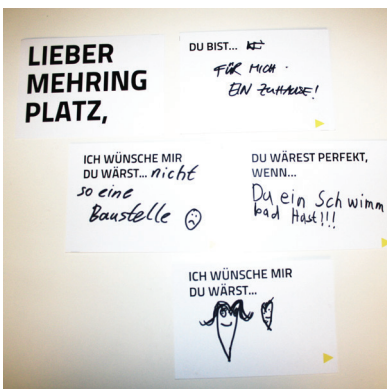 LIEBER
MEHRING
PLATZ,
DU BIST...
FÜR MICH
EIN ZUHAUSE!
ICH WÜNSCHE MIR
DU WÄRST... nicht
so eine
Baustelle
DU WÄREST PERFEKT,
WENN...
Du ein Schwimm
bad Hast!!!
ICH WÜNSCHE MIR
DU WÄRST...